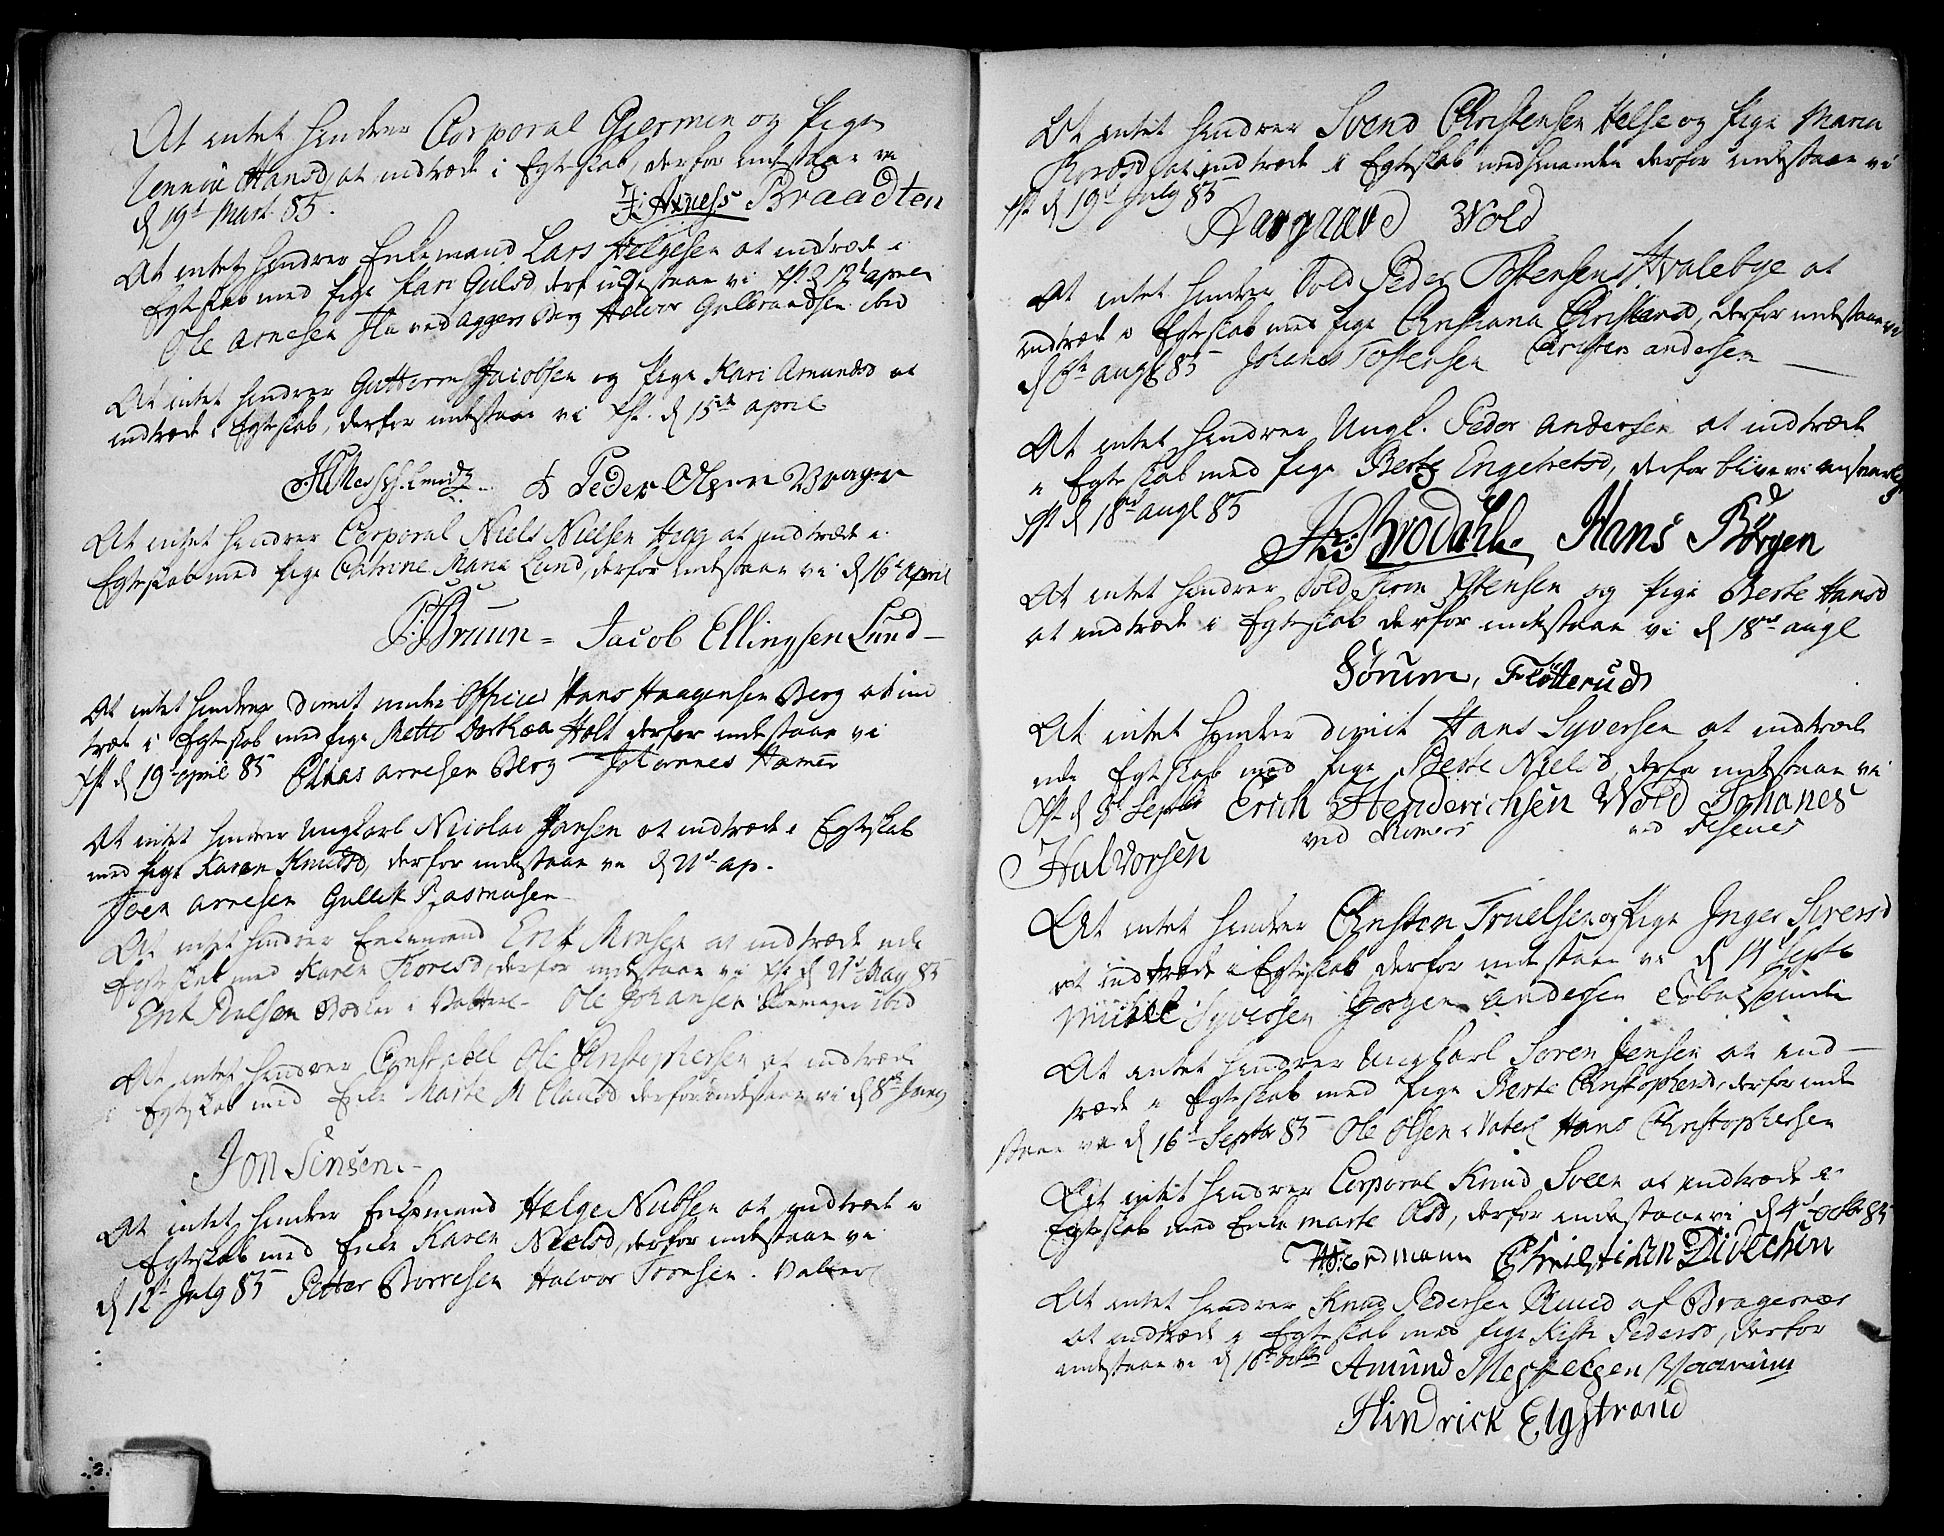 At intet hindrer Corporal Giermen og Pige
Hansd at indtræde i Egteskab, derfor indestaae vi
d 19d Mart. 85.
Braadten
At intet hindrer Enkemand Lars Helgesen at indtræde i
Egteskab med Pige Kari Gulsd derf indestaae vi d 12t april
Ole Arnesen ved Aggers Berg Halvor Gulbrandsen ibid
At intet hindrer Guttorm Jacobsen og Pige Kari Amundsd at
indtræde i Egteskab, derfor indestaae vi d 15de april
Peder Olsen Brager
At intet hindrer Corporal Niels Nielsen Hegg at indtræde i
Egteskab med Pige Catrine Maria Lund, derfor indestaae vi d 16t april
Bruun = Jacob Ellingsen Lund
At intet hindrer dimit under Officier Hans Haagensen Berg at ind
træde i Egteskab med Pige Mette Holt derfor indestaae vi
d 19t april 85 Claas Arnesen Berg Johannes Hamer
At intet hindrer Ungkarl Nicolai Jansen at indtræde i Egteskab
med Pige Karen Knudsd, derfor indestaae vi d 21d ap.
Joen Arnesen Gullik Rasmusen
At intet hindrer Enkemand Erik Monsen at indtræde udi
Egteskab med Karen Toresd, derfor indestaae vi d 21d May 85
Erik Poelsen i Vatterl. Ole Johansen ibid
At intet hindrer Constabel Ole Christophersen at indtræde
i Egteskab med Enke Marte M Clausd derfor indestaae vi d 8de Juny
Jon Simsen
At intet hindrer Enkemand Helge Nubsen at indtræde i
Egteskab med Enke Karen Nielsd, derfor indestaae vi
d 12t July 85 Petter Borresen Halvor Tronsen. Vatterl
At intet hindrer Svend Christensen Helse og Pige Maria
Toresd at indtræde i Egteskab med hinanden derfor indestaae vi
d 19d July 85
Aargaard Wold
At intet hindrer Sold Peder Tostensen Hvalebye at
indtræde i Egteskab med Pige Christiana Christensd, derfor indestaae vi
d 6te augt 85 Johanes Tostensen Christen andersen
At intet hindrer Ungk. Peder Andersen at indtræde
i Egteskab med Pige Berte Engebretsd, derfor blive vi ansvarlig
d 18d augt 85
Brodahl. Hans Børgen
At intet hindrer Sold Iver Ostensen og Pige Berte Hansd
at indtræde i Egteskab derfor indestaae vi d 18de augt
Sørum, Fløtterud
At intet hindrer dimit Hans Syversen at indtræde
udi Egteskab med Pige Berte Nielsd derfor indestaae vi
d 3d Septbr Erich Henderichsen Wold Johanes
Halvorsen
At intet hindrer Christen Truelsen og Pige Inger Siversd
at indtræde i Egteskab derfor indestaae vi d 14d Septbr
Mickel Syversen Jørgen Andersen Tobakspinder
At intet hindrer Ungkarl Soren Jensen at ind-
træde i Egteskab med Pige Berte Christophersd, derfor inde
staae vi d 16d Septbr 85 Ole Olsen i Vaterl Hans Christophersen
At intet hindrer Corporal Knud Sveen at indtræde i
Egteskab med Enke Marte Olsd, derfor indestaae vi d 4d Octbr 85
Christian Didechen
At intet hindrer Knud Pedersen Ruud af Bragernæs
at indtræde i Egteskab med Pige Kiste Pedersd, derfor
indestaae vi d 10de Octbr Amund
Hindrick Elgstrand